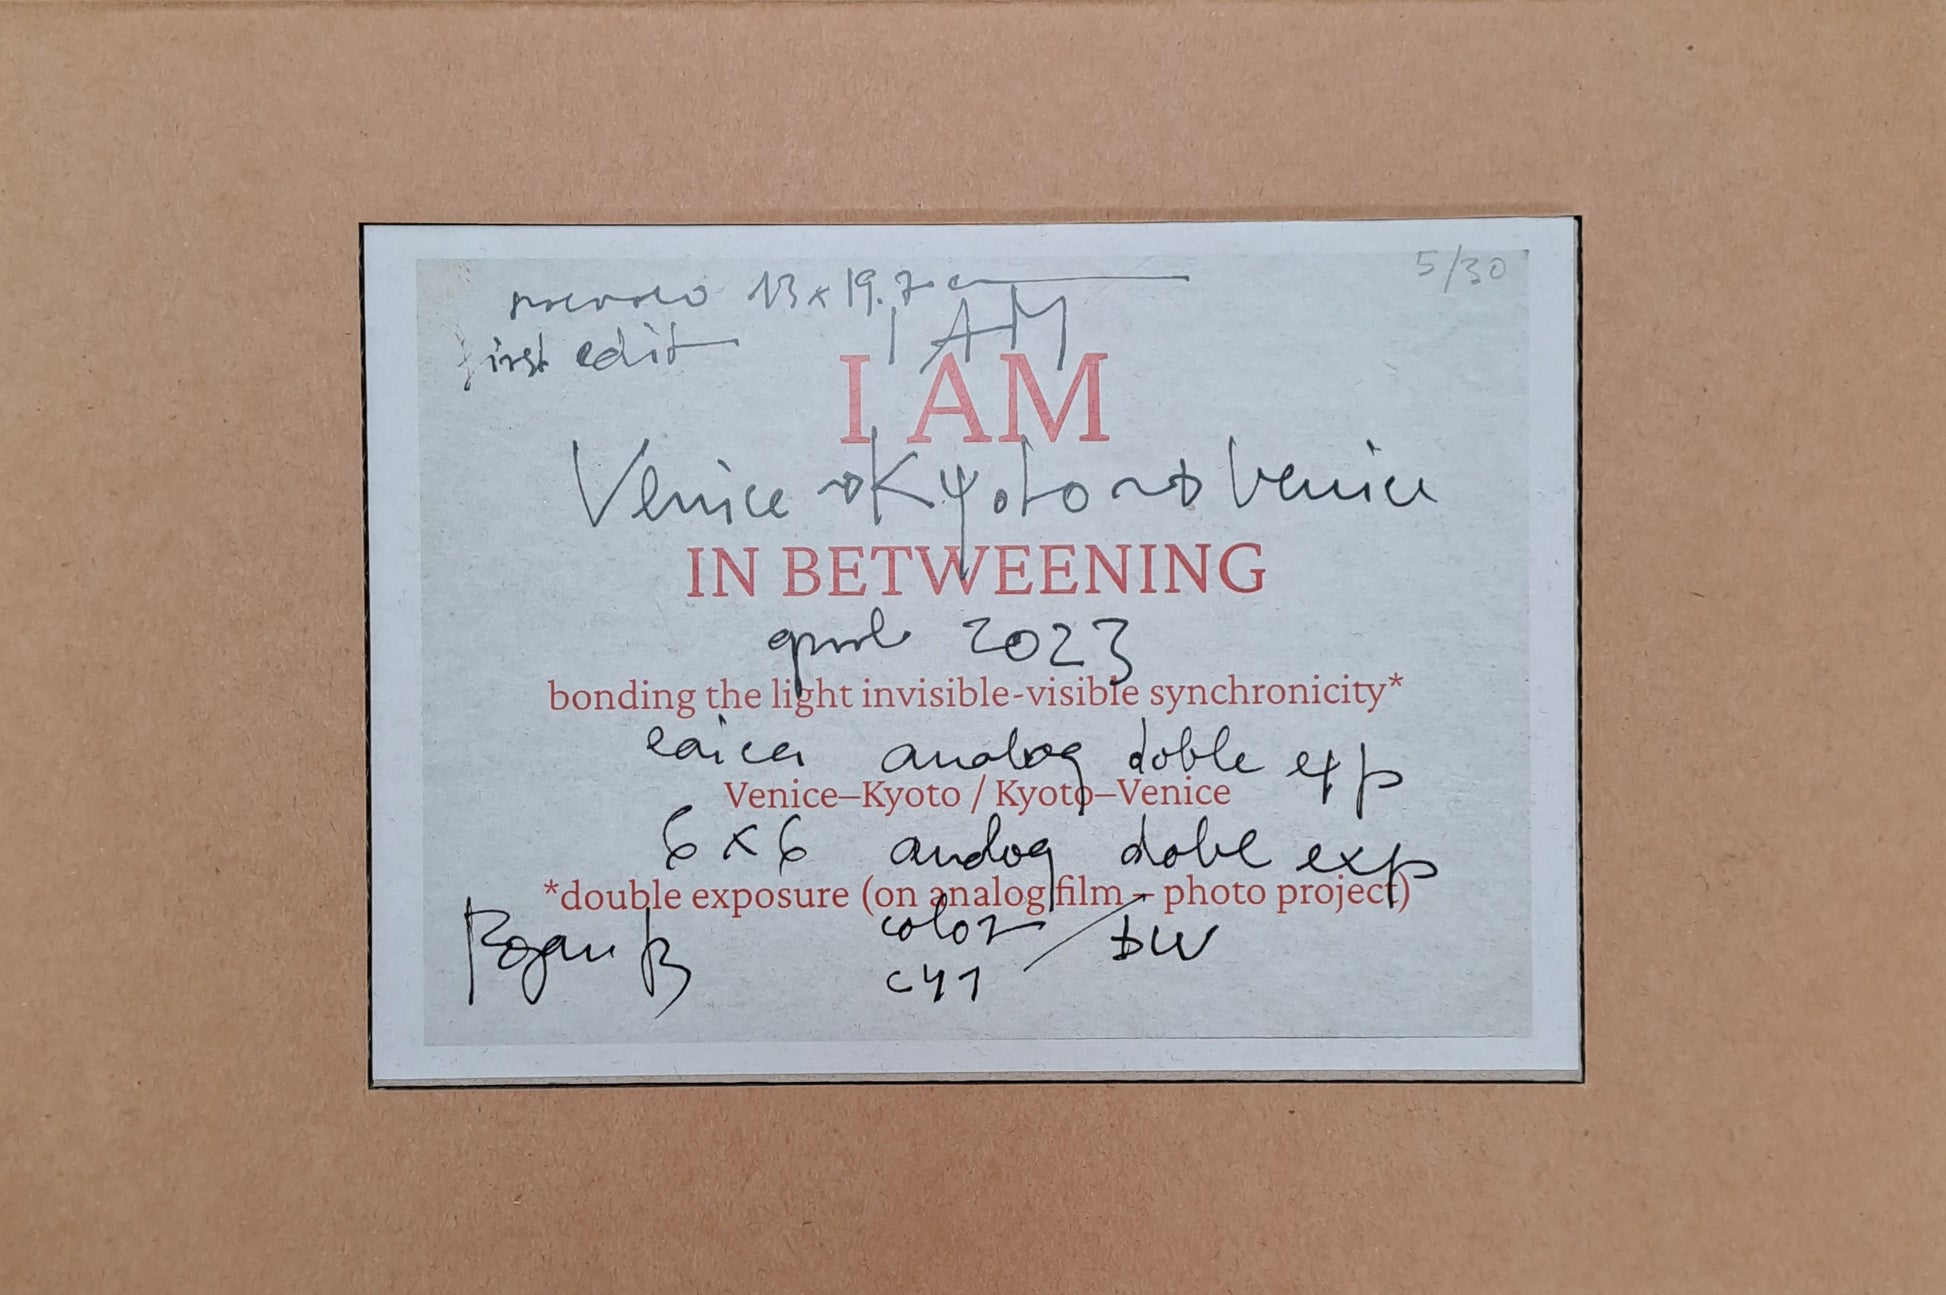 13x19.7 5/30
first edit I AM
I AM
Venice → Kyoto → Venice
IN BETWEENING
april 2023
bonding the light invisible-visible synchronicity*
analog doble exp
Venice–Kyoto / Kyoto–Venice
6x6 analog doble exp
*double exposure (on analog film – photo project)
color / BW
C41